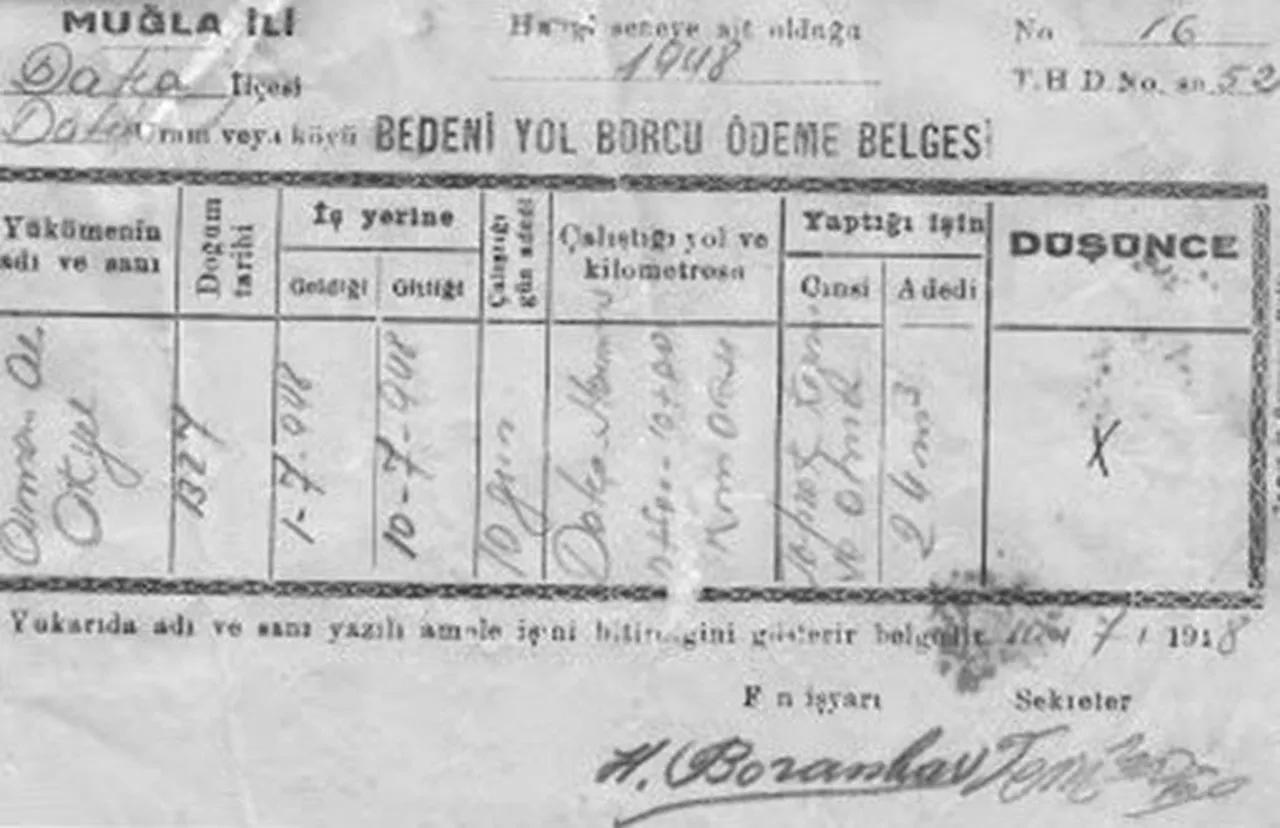 MUĞLA İLİ
Hangi seneye ait olduğu
No 16
Datça İlçesi
1948
T.H D.No. sn 52
Datça Uram veya köyü BEDENİ YOL BORCU ÖDEME BELGESİ
Yükümenin adı ve sanı
Doğum tarihi
İş yerine
Geldiği
Gittiği
Çalıştığı gün adedi
Çalıştığı yol ve kilometrosu
Yaptığı işin
Cinsi
Adedi
DÜŞÜNCE
Osman
Okyel
1327
1-7-948
10-7-948
10 gün
Datça
24 m³
X
Yukarıda adı ve sanı yazılı amele işini bitirdiğini gösterir belgedir 7 / 1948
Fen işyarı
Sekreter
H. Boranhav